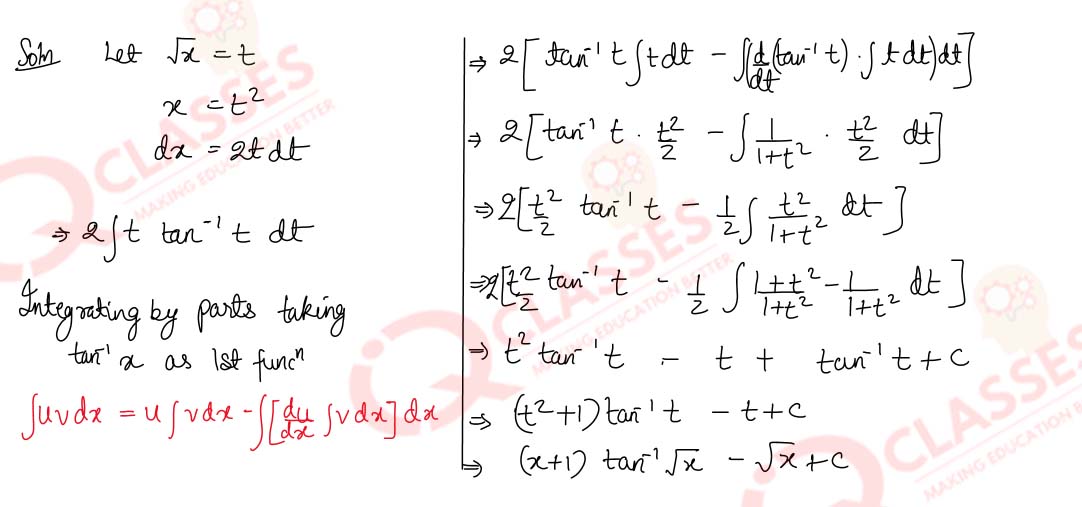 Soln Let √x = t
x = t²
dx = 2t dt
⇒ 2∫t tan⁻¹ t dt
Integrating by parts taking
tan⁻¹ x as 1st funcⁿ
∫uvdx = u∫vdx - ∫[du/dx ∫vdx]dx
⇒ 2[tan⁻¹ t∫tdt - ∫(d/dt(tan⁻¹ t) · ∫t dt)dt]
⇒ 2[tan⁻¹ t · t²/2 - ∫1/(1+t²) · t²/2 dt]
⇒ 2[t²/2 tan⁻¹ t - 1/2∫t²/(1+t²) dt]
⇒ 2[t²/2 tan⁻¹ t - 1/2 ∫(1+t²)/(1+t²) - 1/(1+t²) dt]
⇒ t² tan⁻¹ t - t + tan⁻¹ t + c
⇒ (t²+1) tan⁻¹ t - t + c
⇒ (x+1) tan⁻¹ √x - √x + c
CLASSES
MAKING EDUCATION BETTER
CLASSES
MAKING EDUCATION BETTER
CLASSES
MAKING EDUCATION BETTER